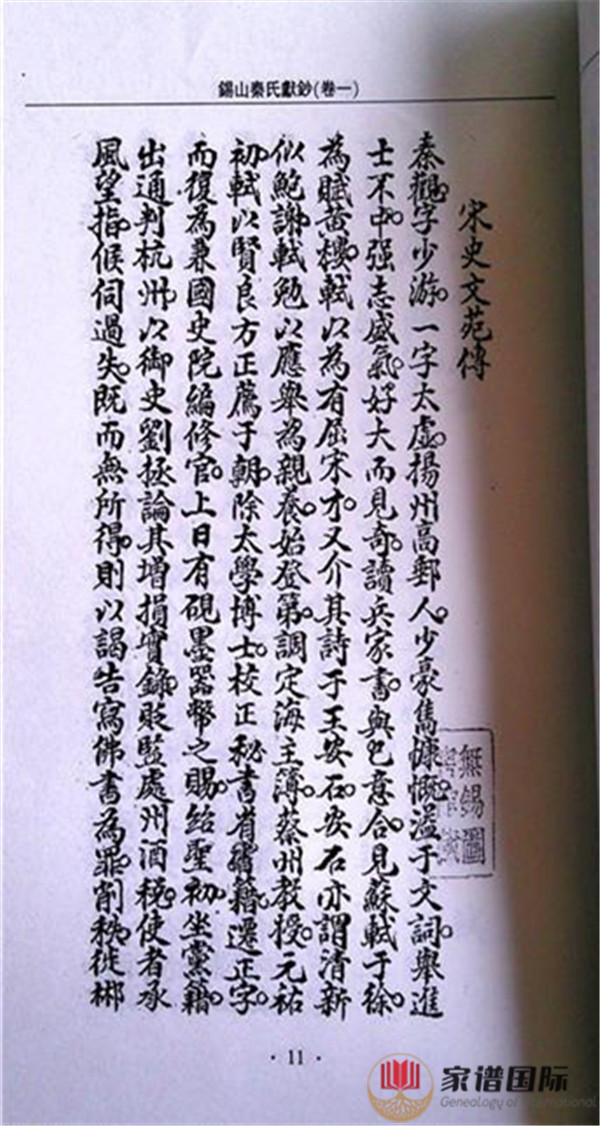 錫山秦氏獻鈔(卷一)
宋史文苑傳
秦觀字少游一字太虛揚州高郵人少豪雋慷慨溢于文詞舉進
士不中强志盛氣好大而見奇讀兵家書與己意合見蘇軾于徐
為賦黃樓軾以為有屈宋才又介其詩于王安石安石亦謂清新
似鮑謝軾勉以應舉為親養始登第調定海主簿蔡州教授元祐
初軾以賢良方正薦于朝除太學博士校正秘書省書籍遷正字
而復為兼國史院編修官上日有硯墨器幣之賜紹聖初坐黨籍
出通判杭州以御史劉拯論其增損實錄貶監處州酒稅使者承
風望指候伺過失既而無所得則以謁告寫佛書為罪削秩徙郴
無錫圖
· 11 ·
家谱国际
Genealogy of International